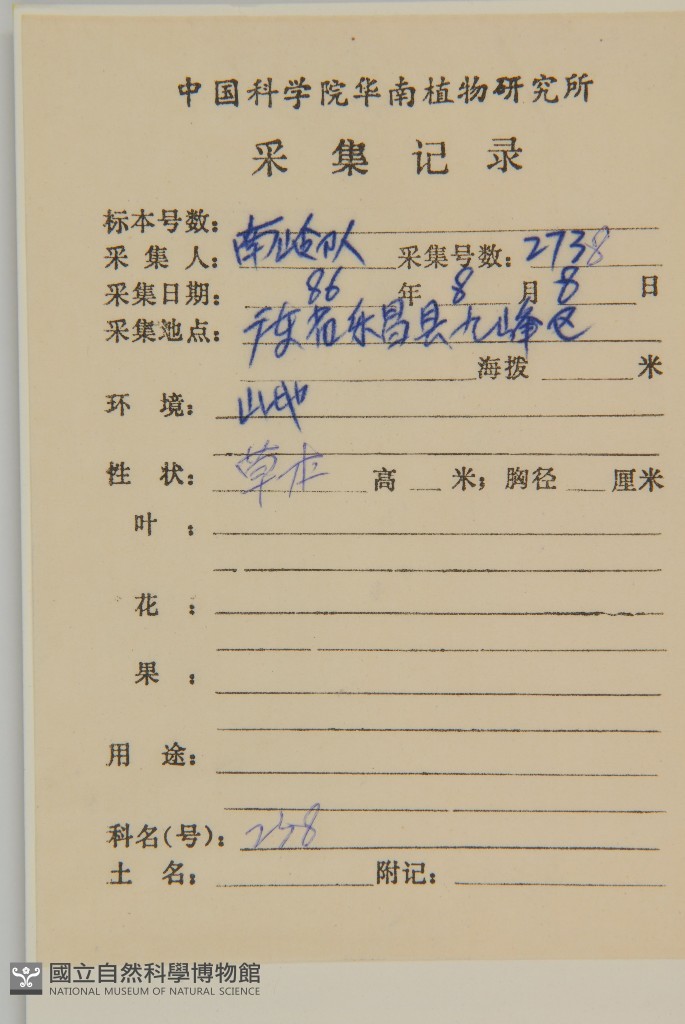 中国科学院华南植物研究所
采集记录
标本号数：
采集人：南岭队 采集号数：2738
采集日期：86年8月8日
采集地点：广东省乐昌县九峰区
海拨 米
环境：山地
性状：草本 高 米；胸径 厘米
叶：
花：
果：
用途：
科名(号)：238
土名： 附记：
國立自然科學博物館
NATIONAL MUSEUM OF NATURAL SCIENCE